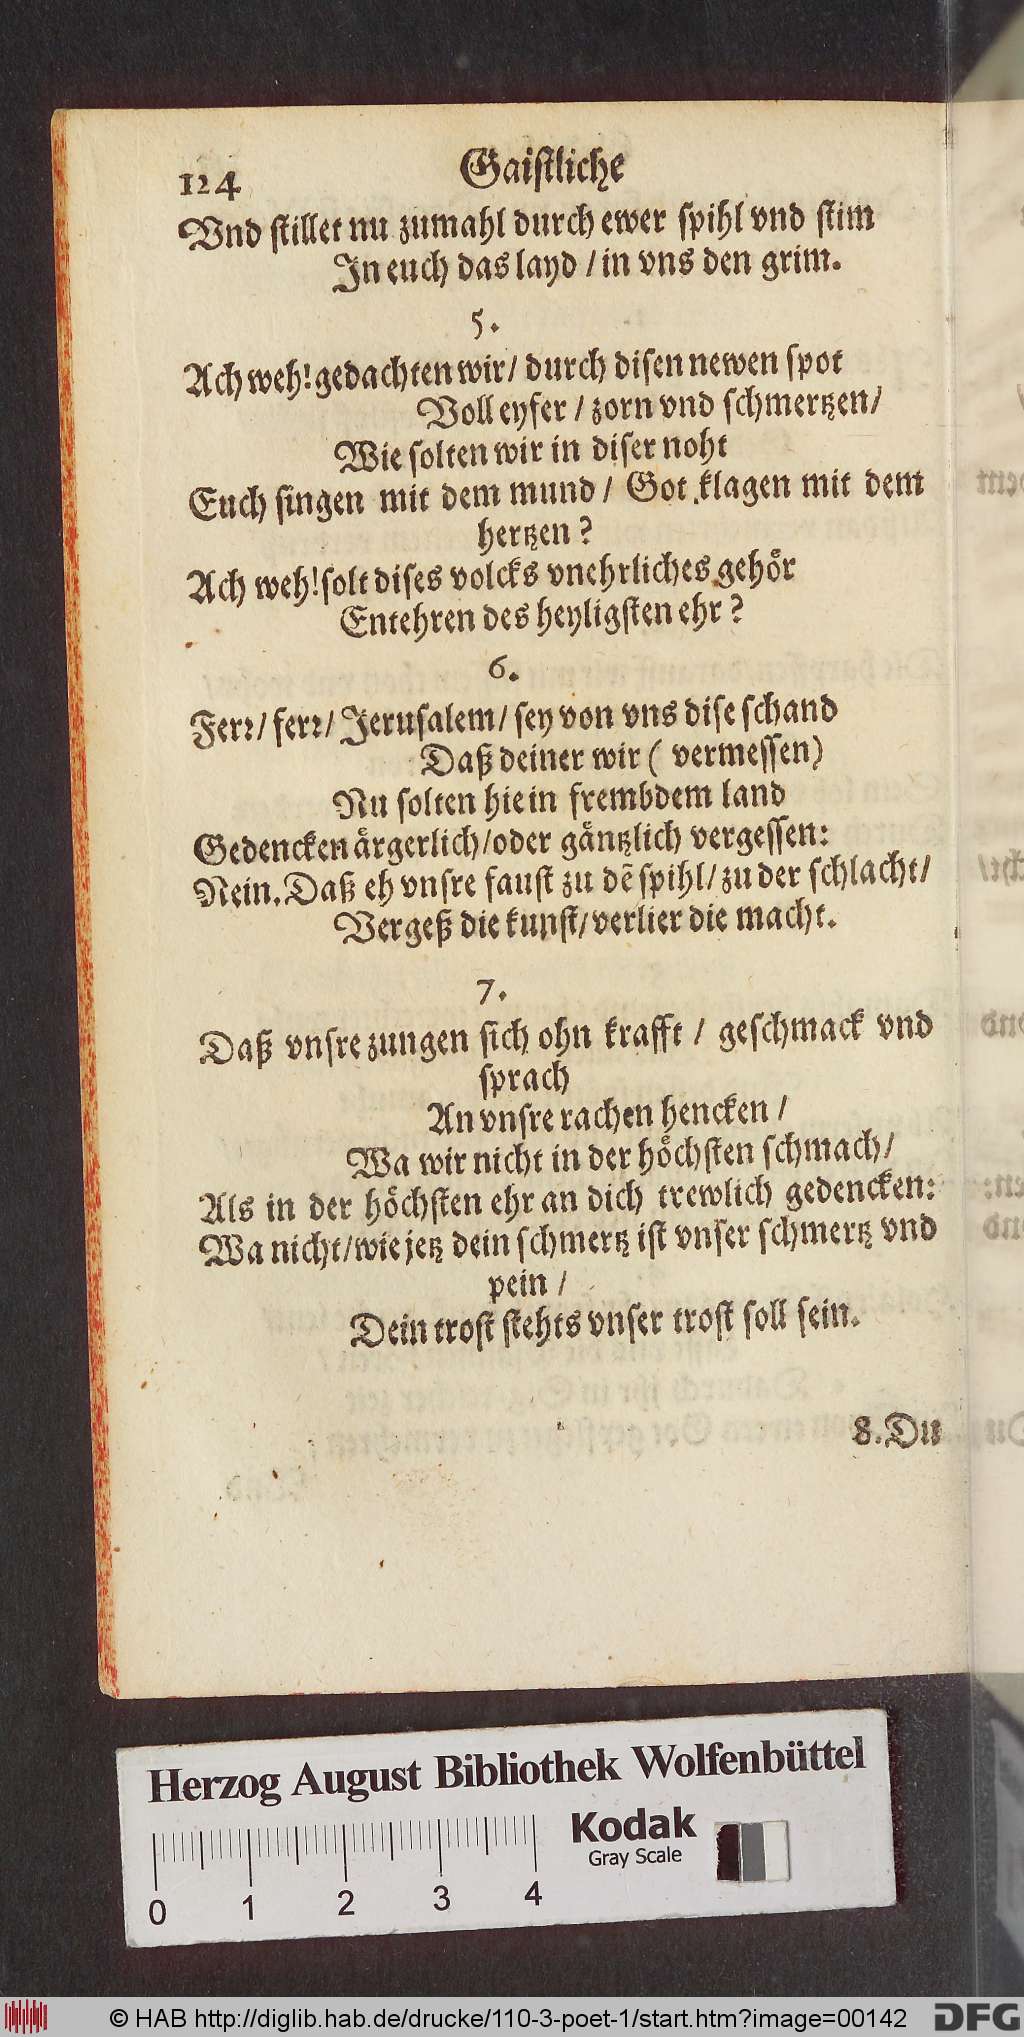 124 Gaistliche
Vnd stillet nu zumahl durch ewer spihl vnd stim
In euch das layd / in vns den grim.
5.
Ach weh! gedachten wir / durch disen newen spot
Voll eyfer / zorn vnd schmertzen /
Wie solten wir in diser noht
Euch singen mit dem mund / Got klagen mit dem
hertzen?
Ach weh! solt dises volcks vnehrliches gehör
Entehren des heyligsten ehr?
6.
Ferr / ferr / Jerusalem / sey von vns dise schand
Daß deiner wir ( vermessen)
Nu solten hie in frembdem land
Gedencken ärgerlich / oder gäntzlich vergessen:
Nein. Daß eh vnsre faust zu dẽ spihl / zu der schlacht /
Vergeß die kunst / verlier die macht.
7.
Daß vnsre zungen sich ohn krafft / geschmack vnd
sprach
An vnsre rachen hencken /
Wa wir nicht in der höchsten schmach /
Als in der höchsten ehr an dich trewlich gedencken:
Wa nicht / wie jetz dein schmertz ist vnser schmertz vnd
pein /
Dein trost stehts vnser trost soll sein.
8. Du
Herzog August Bibliothek Wolfenbüttel
Kodak
Gray Scale
0 1 2 3 4
© HAB http://diglib.hab.de/drucke/110-3-poet-1/start.htm?image=00142
DFG